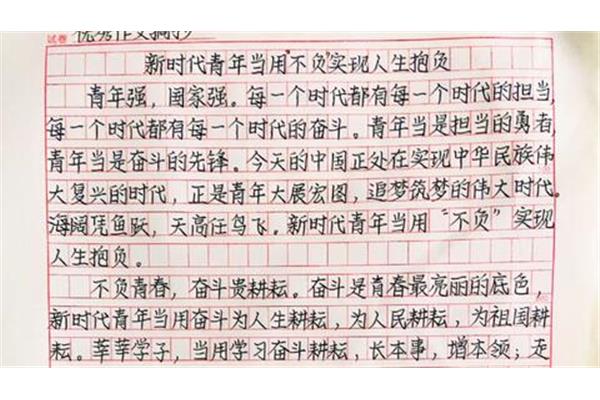 试卷 优秀作文摘抄
新时代青年当用“不负”实现人生抱负
青年强，国家强。每一个时代都有每一个时代的担当，
每一个时代都有每一个时代的奋斗。青年当是担当的勇者，
青年当是奋斗的先锋。今天的中国正处在实现中华民族伟
大复兴的时代，正是青年大展宏图，追梦筑梦的伟大时代。
海阔凭鱼跃，天高任鸟飞。新时代青年当用“不负”实现
人生抱负。
不负青春，奋斗贵耕耘。奋斗是青春最亮丽的底色，
新时代青年当用奋斗为人生耕耘，为人民耕耘，为祖国耕
耘。莘莘学子，当用学习奋斗耕耘，长本事，增本领；走